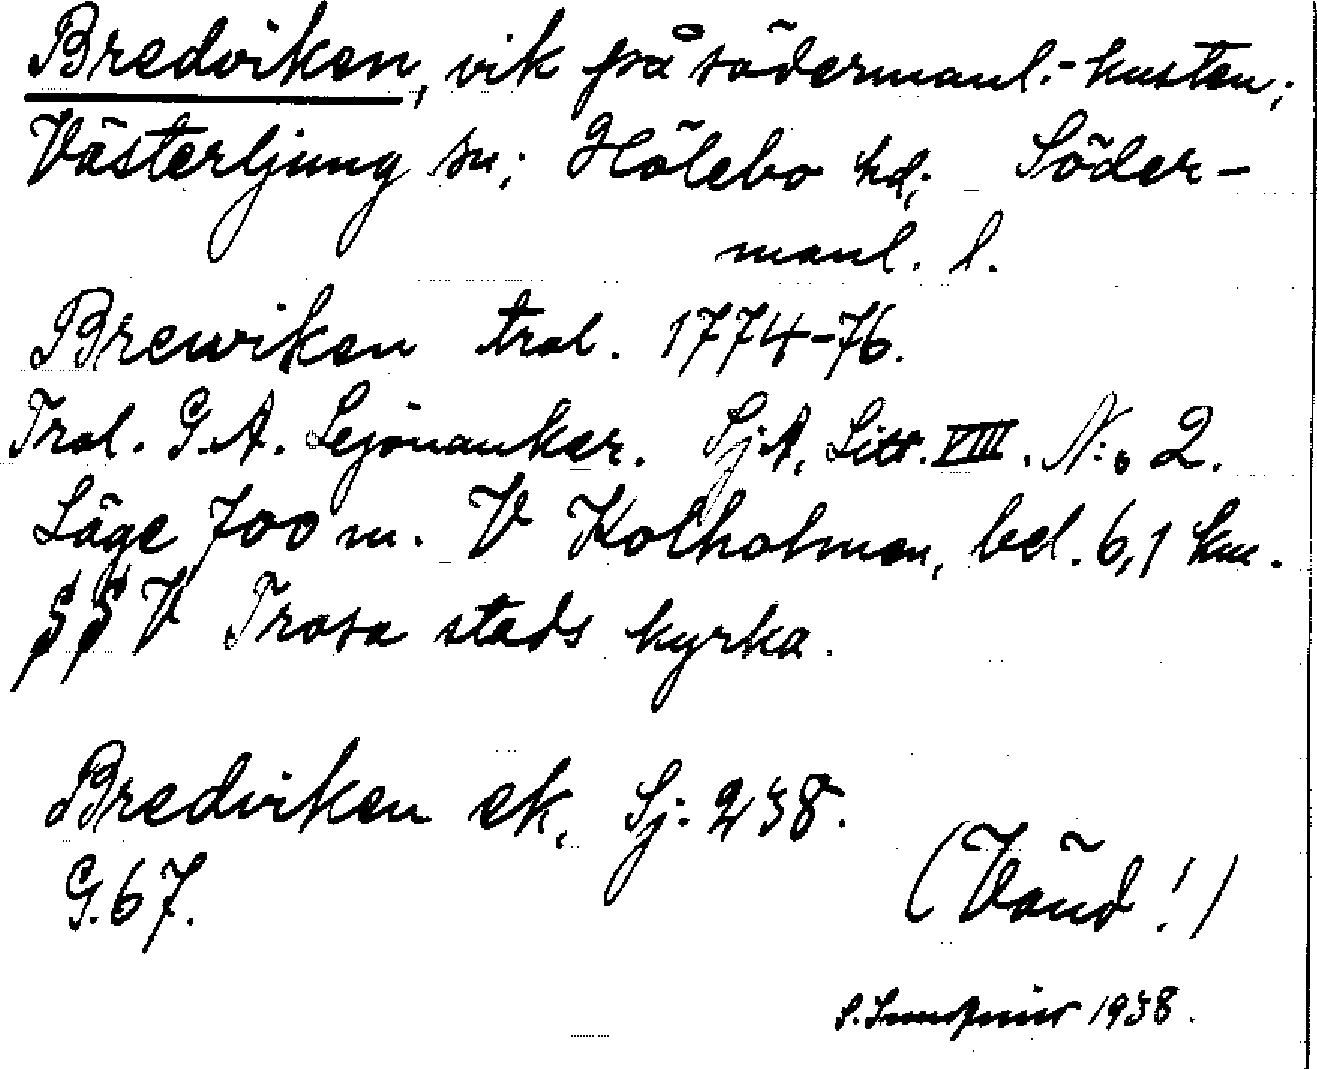 Bredviken, vik på södermanl.-kusten;
Västerljung sn; Hölebo hd; Söder-
manl. l.
Brewiken tral. 1774-76.
Tral. G.A. Lejonanker. Sj.A. Litt. VIII. N:o 2.
Läge 700 m. V Kolholmen, bel. 6,1 km.
§§V Trosa stads kyrka.
Bredviken ek. Sj. 238.
G.67.
(Vänd!)
S. 1938.